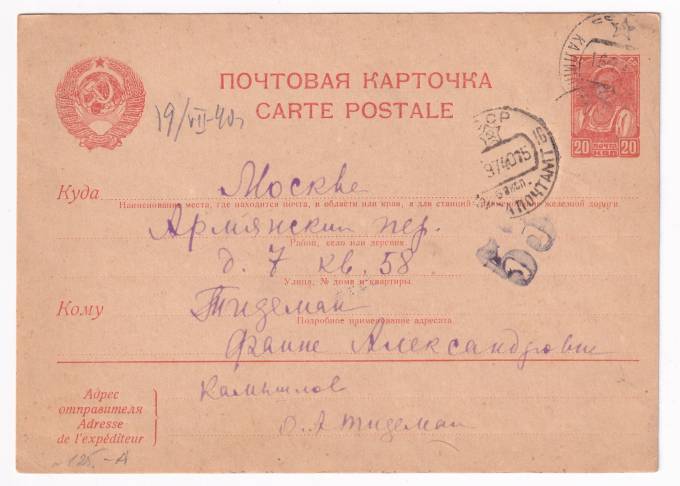 ПОЧТОВАЯ КАРТОЧКА
CARTE POSTALE
19/VII-40г.
20 ПОЧТА 20
Куда Москва
Наименование места, где находится почта, и области или края, а для станций железной дороги
Армянский пер.
Район, село или деревня
д. 7 кв. 58
Улица, № дома и квартиры
Кому Тидеман
Подробное наименование адресата
Фаине Александровне
53
Адрес
отправителя
Adresse
de l'expéditeur
Камышлов
Тидеман